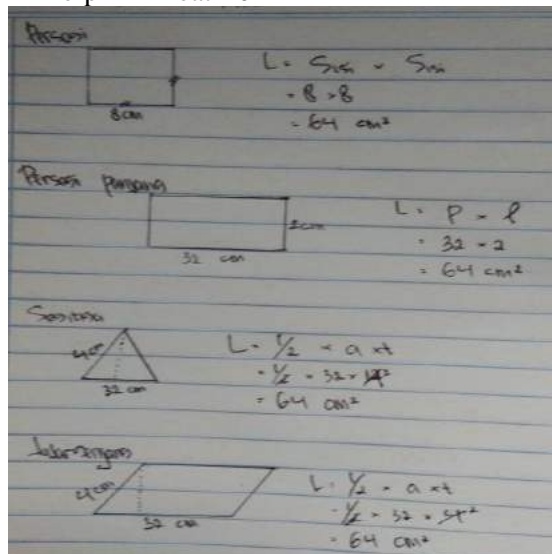 Persegi
8 cm
L = Sisi × Sisi
= 8 × 8
= 64 cm²
Persegi panjang
2 cm
32 cm
L = P × l
= 32 × 2
= 64 cm²
4 cm
32 cm
L = 1/2 × a × t
= 1/2 × 32 × 4²
= 64 cm²
4 cm
32 cm
L = 1/2 × a × t
= 1/2 × 32 × 4²
= 64 cm²